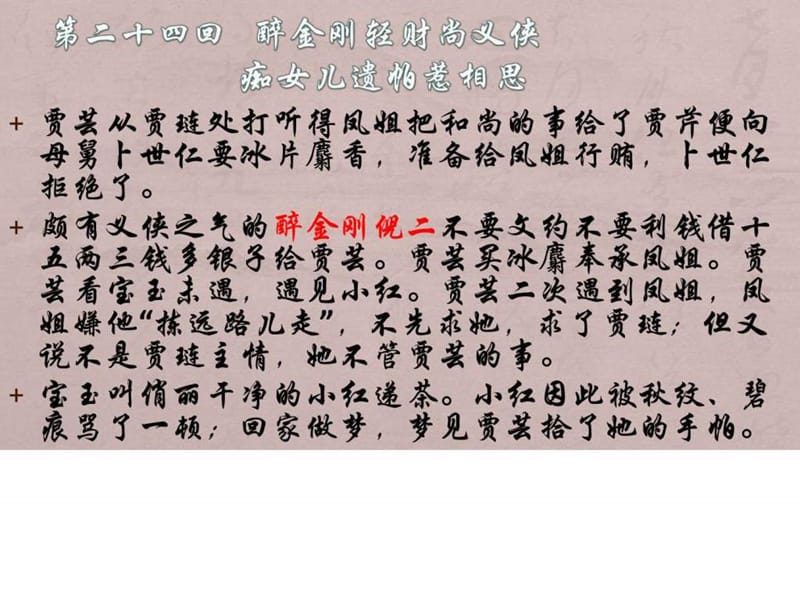 第二十四回 醉金刚轻财尚义侠
痴女儿遗帕惹相思
+ 贾芸从贾琏处打听得凤姐把和尚的事给了贾芹便向
母舅卜世仁要冰片麝香，准备给凤姐行贿，卜世仁
拒绝了。
+ 颇有义侠之气的醉金刚倪二不要文约不要利钱借十
五两三钱多银子给贾芸。贾芸买冰麝奉承凤姐。贾
芸看宝玉未遇，遇见小红。贾芸二次遇到凤姐，凤
姐嫌他“拣远路儿走”，不先求她，求了贾琏；但又
说不是贾琏主情，她不管贾芸的事。
+ 宝玉叫俏丽干净的小红递茶。小红因此被秋纹、碧
痕骂了一顿；回家做梦，梦见贾芸拾了她的手帕。